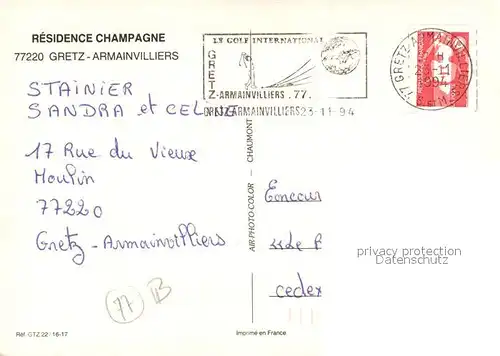 RÉSIDENCE CHAMPAGNE
77220 GRETZ-ARMAINVILLIERS
LE GOLF INTERNATIONAL
GRET
Z-ARMAINVILLIERS .77.
GRETZ-ARMAINVILLIERS 23-11-94
77 GRETZ-ARMAINVILLIERS
H
23-11
1994
S. et M.
STAINIER
SANDRA et CELINE
17 Rue du Vieux
Moulin
77220
Gretz-Armainvilliers
77 B
AIR PHOTO COLOR - CHAUMONT
Concour
cedex
privacy protection
Datenschutz
Réf. GTZ 22 / 16-17
Imprimé en France